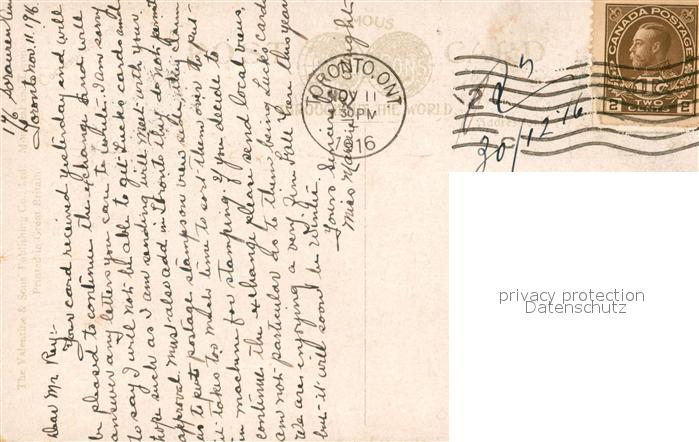 176 Sorauren
Toronto Nov. 11. 1916
Dear Mr. Rey:-
Your card received yesterday and will
be pleased to continue the exchange and will
answer any letters you care to write. I am sorry
to say I will not be able to get Tucks cards and
hope such as I am sending will meet with your
approval. Must also add in Toronto they do not permit
us to put postage stamps on view side, they claim
it takes too much time to sort them over to put
in machine for stamping. If you decide to
continue the exchange please send local views,
am not particular as to them being Tucks cards
We are enjoying a very fine Fall here this year
but it will soon be Winter.
Yours Sincerely
Miss
FAMOUS
POST CARD
THROUGHOUT THE WORLD
The Valentine & Sons Publishing Co., Ltd.
Printed in Great Britain
TORONTO, ONT.
NOV 11
30 PM
1916
CANADA POSTAGE
1TC
2 TWO 2
30/12 16
privacy protection
Datenschutz